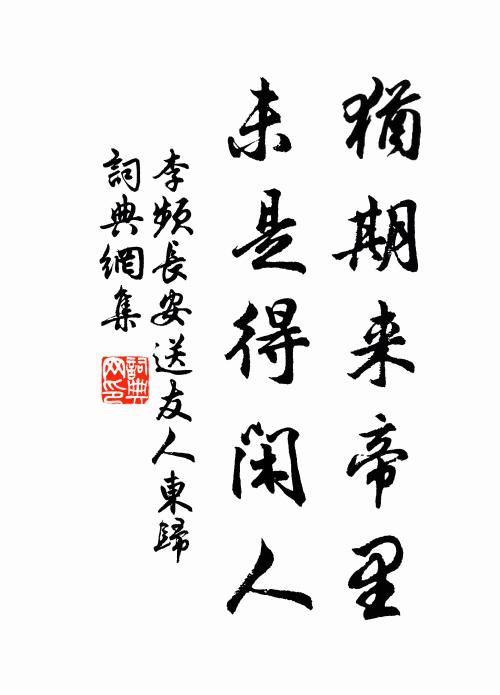 猶期来帝里
未是得閑人
李頻長安送友人東歸
詞典網集
詞典网印